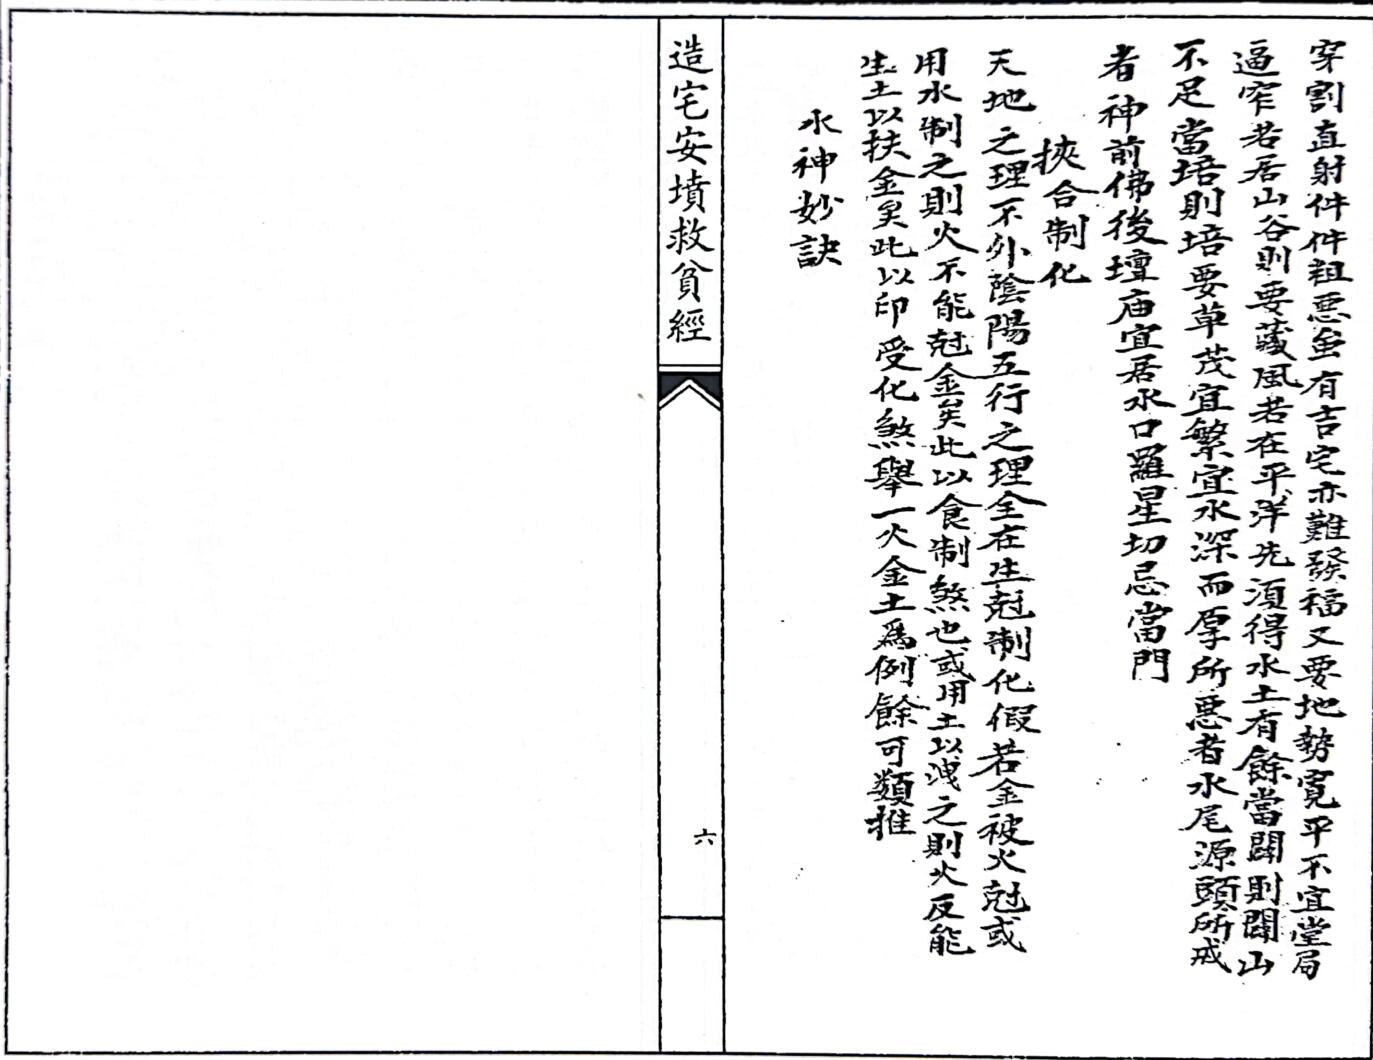 穿割直射件件粗悪虽有吉宅亦難發福又要地勢寬平不宜堂局
逼窄若居山谷則要藏風若在平洋先須得水土有餘當闢則闢山
不足當培則培要草茂宜繁宜水深而厚所悪者水尾源頭所戒
者神前佛後壇庙宜居水口羅星切忌當門
挾合制化
天地之理不外陰陽五行之理全在生尅制化假若金被火尅或
用水制之則火不能尅金矣此以食制煞也或用土以洩之則火反能
生土以扶金矣此以印受化煞舉一火金土爲例餘可類推
水神妙訣
造宅安墳救貧經
六